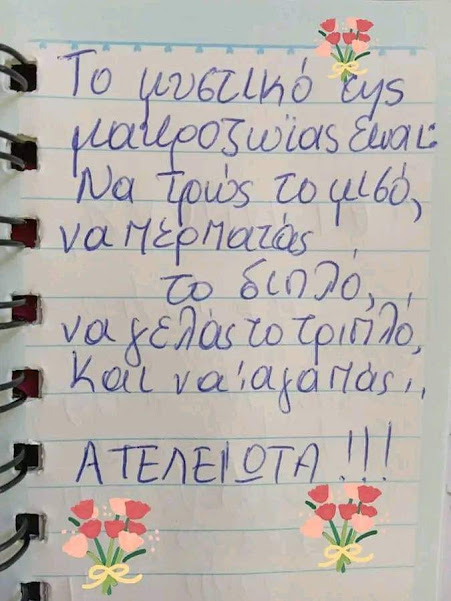 Το μυστικό της
μακροζωϊας είναι:
Να τρώς το μισό,
να περπατάς
το διπλό,
να γελάς το τριπλό,
Και να αγαπάς..
ΑΤΕΛΕΙΩΤΑ!!!